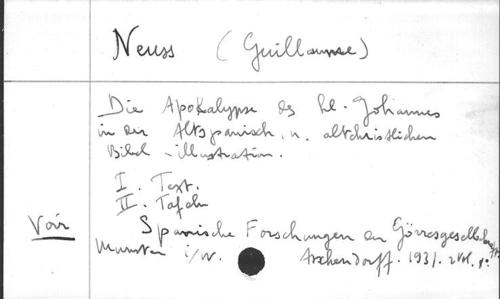 Neuss (Guillaume)
Die Apokalypse des hl. Johannes
in der Altspanisch. u. altchristlichen
Bibel-illustration.
I. Text.
II. Tafeln
Voir
Spanische Forschungen der Görresgesellschaft.
Munster i/W. Aschendorff. 1931. 2 vol. 8°.